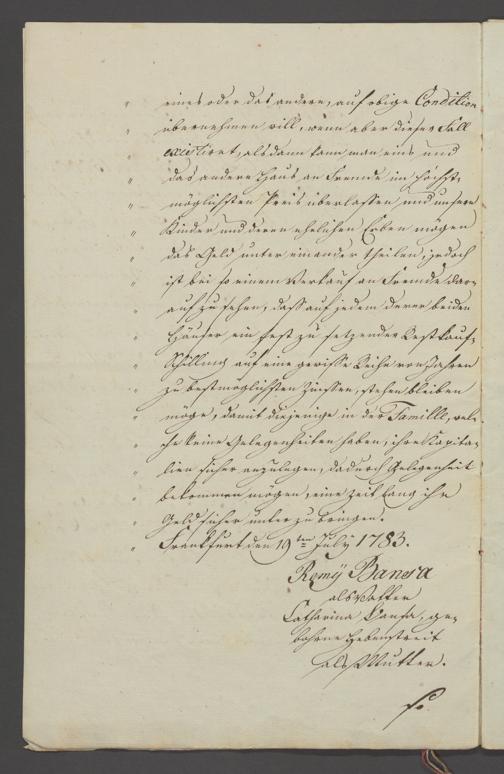 " eines oder das andere, auf obige Condition
" übernehmen will, wenn aber dieser Fall
" existiret, alsdann kann man eins und
" das andere Haus an Fremde im höchst-
" möglichsten Preis überlassen und unsere
" Kinder und deren ehelichen Erben mögen
" das Geld unter einander theilen, jedoch
" ist bei so einem Verkauf an Fremde dar-
" auf zu sehen, dass auf jedem derer beiden
" Häuser ein fest zu setzender Restkauf-
" Schilling auf eine gewisse Reihe von Jahren
" zu bestmöglichsten Zinssen, stehen bleiben
" möge, damit diejenige in der Famille, wel-
" che keine Gelegenheiten haben, ihre Kapita-
" lien sicher anzulegen, dadurch Gelegenheit
" bekommen mögen, eine Zeit lang ihr
" Geld sicher unter zu bringen.
" Frankfurt den 19ten July 1783.
Remÿ Bansa
als Vatter
Catharina Bansa, ge-
bohrne Hebenstreit
als Mutter.